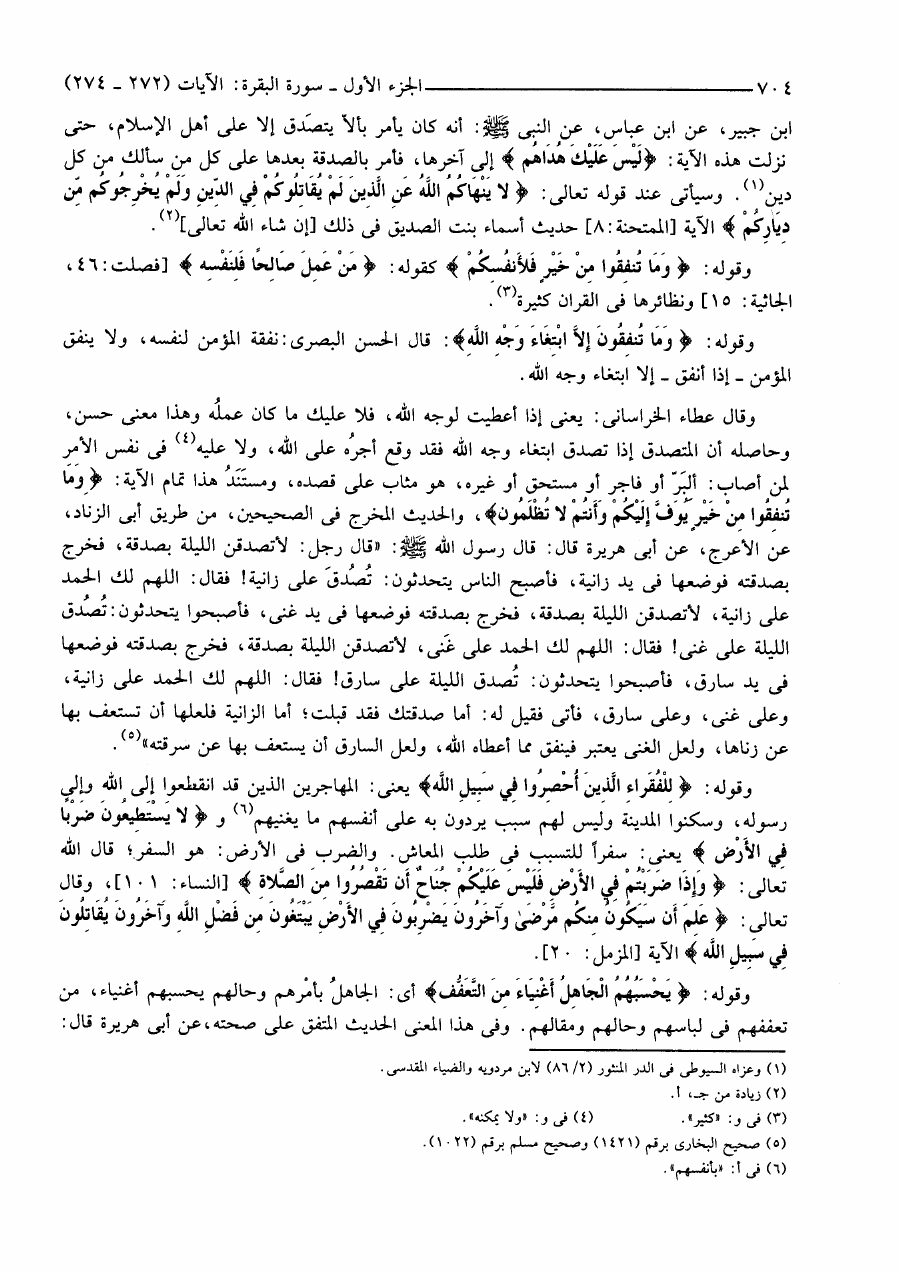 ٧٠٤ ـــــــــــــــ الجزء الأول ـ سورة البقرة: الآيات (٢٧٢ ـ ٢٧٤)
ابن جبير، عن ابن عباس، عن النبى ﷺ: أنه كان يأمر بألا يتصَدق إلا على أهل الإسلام، حتى
نزلت هذه الآية: ﴿لَيْسَ عَلَيْكَ هُدَاهُم ﴾ إلى آخرها، فأمر بالصدقة بعدها على كل من سألك من كل
دين(١). وسيأتى عند قوله تعالى: ﴿ لا يَنْهَاكُمُ اللَّهُ عَنِ الَّذِينَ لَمْ يُقَاتِلُوكُمْ فِي الدِّينِ وَلَمْ يُخْرِجُوكُم مِّن
دِيَارِكُمْ ﴾ الآية [الممتحنة:٨] حديث أسماء بنت الصديق فى ذلك [إن شاء الله تعالى](٢).
وقوله: ﴿ وَمَا تُنفِقُوا مِنْ خَيْرٍ فَلأَنفُسِكُمْ ﴾ كقوله: ﴿ مَنْ عَمِلَ صَالِحًا فَلِنَفْسِه ﴾ [فصلت:٤٦،
الجاثية: ١٥] ونظائرها فى القران كثيرة(٣).
وقوله: ﴿ وَمَا تُنفِقُونَ إِلاَّ ابْتِغَاءَ وَجْهِ اللَّهِ﴾: قال الحسن البصرى:نفقة المؤمن لنفسه، ولا ينفق
المؤمن ـ إذا أنفق ـ إلا ابتغاء وجه الله.
وقال عطاء الخراسانى: يعنى إذا أعطيت لوجه الله، فلا عليك ما كان عملُه وهذا معنى حسن،
وحاصله أن المتصدق إذا تصدق ابتغاء وجه الله فقد وقع أجرهُ على الله، ولا عليه(٤) فى نفس الأمر
لمن أصاب: ألبَرّ أو فاجر أو مستحق أو غيره، هو مثاب على قصده، ومستَنَدُ هذا تمام الآية: ﴿ وَمَا
تُنفِقُوا مِنْ خَيْرٍ يُوَفَّ إِلَيْكُمْ وَأَنتُمْ لا تُظْلَمُون﴾، والحديث المخرج فى الصحيحين، من طريق أبى الزناد،
عن الأعرج، عن أبى هريرة قال: قال رسول الله ﷺ: «قال رجل: لأتصدقن الليلة بصدقة، فخرج
بصدقته فوضعها فى يد زانية، فأصبح الناس يتحدثون: تُصُدقَ على زانية! فقال: اللهم لك الحمد
على زانية، لأتصدقن الليلة بصدقة، فخرج بصدقته فوضعها فى يد غنى، فأصبحوا يتحدثون:تُصُدق
الليلة على غنى! فقال: اللهم لك الحمد على غَنى، لأتصدقن الليلة بصدقة، فخرج بصدقته فوضعها
فى يد سارق، فأصبحوا يتحدثون: تُصدق الليلة على سارق! فقال: اللهم لك الحمد على زانية،
وعلى غنى، وعلى سارق، فأتى فقيل له: أما صدقتك فقد قبلت؛ أما الزانية فلعلها أن تستعف بها
عن زناها، ولعل الغنى يعتبر فينفق مما أعطاه الله، ولعل السارق أن يستعف بها عن سرقته»(٥).
وقوله: ﴿ لِلْفُقَرَاءِ الَّذِينَ أُحْصِرُوا فِي سَبِيلِ اللَّه﴾ يعنى: المهاجرين الذين قد انقطعوا إلى الله وإلى
رسوله، وسكنوا المدينة وليس لهم سبب يردون به على أنفسهم ما يغنيهم(٦) و ﴿ لا يَسْتَطِيعُونَ ضَرْبًا
فِي الأَرْضِ ﴾ يعنى: سفراً للتسبب فى طلب المعاش. والضرب فى الأرض: هو السفر؛ قال الله
تعالى: ﴿ وَإِذَا ضَرَبْتُمْ فِي الأَرْضِ فَلَيْسَ عَلَيْكُمْ جُنَاحٌ أَن تَقْصُرُوا مِنَ الصَّلاة ﴾ [النساء: ١٠١]، وقال
تعالى: ﴿ عَلِمَ أَن سَيَكُونُ مِنكُم مَّرْضَىٰ وَآخَرُونَ يَضْرِبُونَ فِي الأَرْضِ يَبْتَغُونَ مِن فَضْلِ اللَّهِ وَآخَرُونَ يُقَاتِلُونَ
فِي سَبِيلِ اللَّه ﴾ الآية [المزمل: ٢٠].
وقوله: ﴿ يَحْسَبُهُمُ الْجَاهِلُ أَغْنِيَاءَ مِنَ التَّعَفُّف﴾ أى: الجاهلُ بأمْرهم وحالهم يحسبهم أغنياء، من
تعففهم فى لباسهم وحالهم ومقالهم. وفى هذا المعنى الحديث المتفق على صحته،عن أبى هريرة قال:
(١) وعزاه السيوطى فى الدر المنثور (٨٦/٢) لابن مردويه والضياء المقدسى.
(٢) زيادة من جـ، أ.
(٣) فى و: «كثير». (٤) فى و: «ولا يمكنه».
(٥) صحيح البخارى برقم (١٤٢١) وصحيح مسلم برقم (١٠٢٢).
(٦) فى أ: «بأنفسهم».